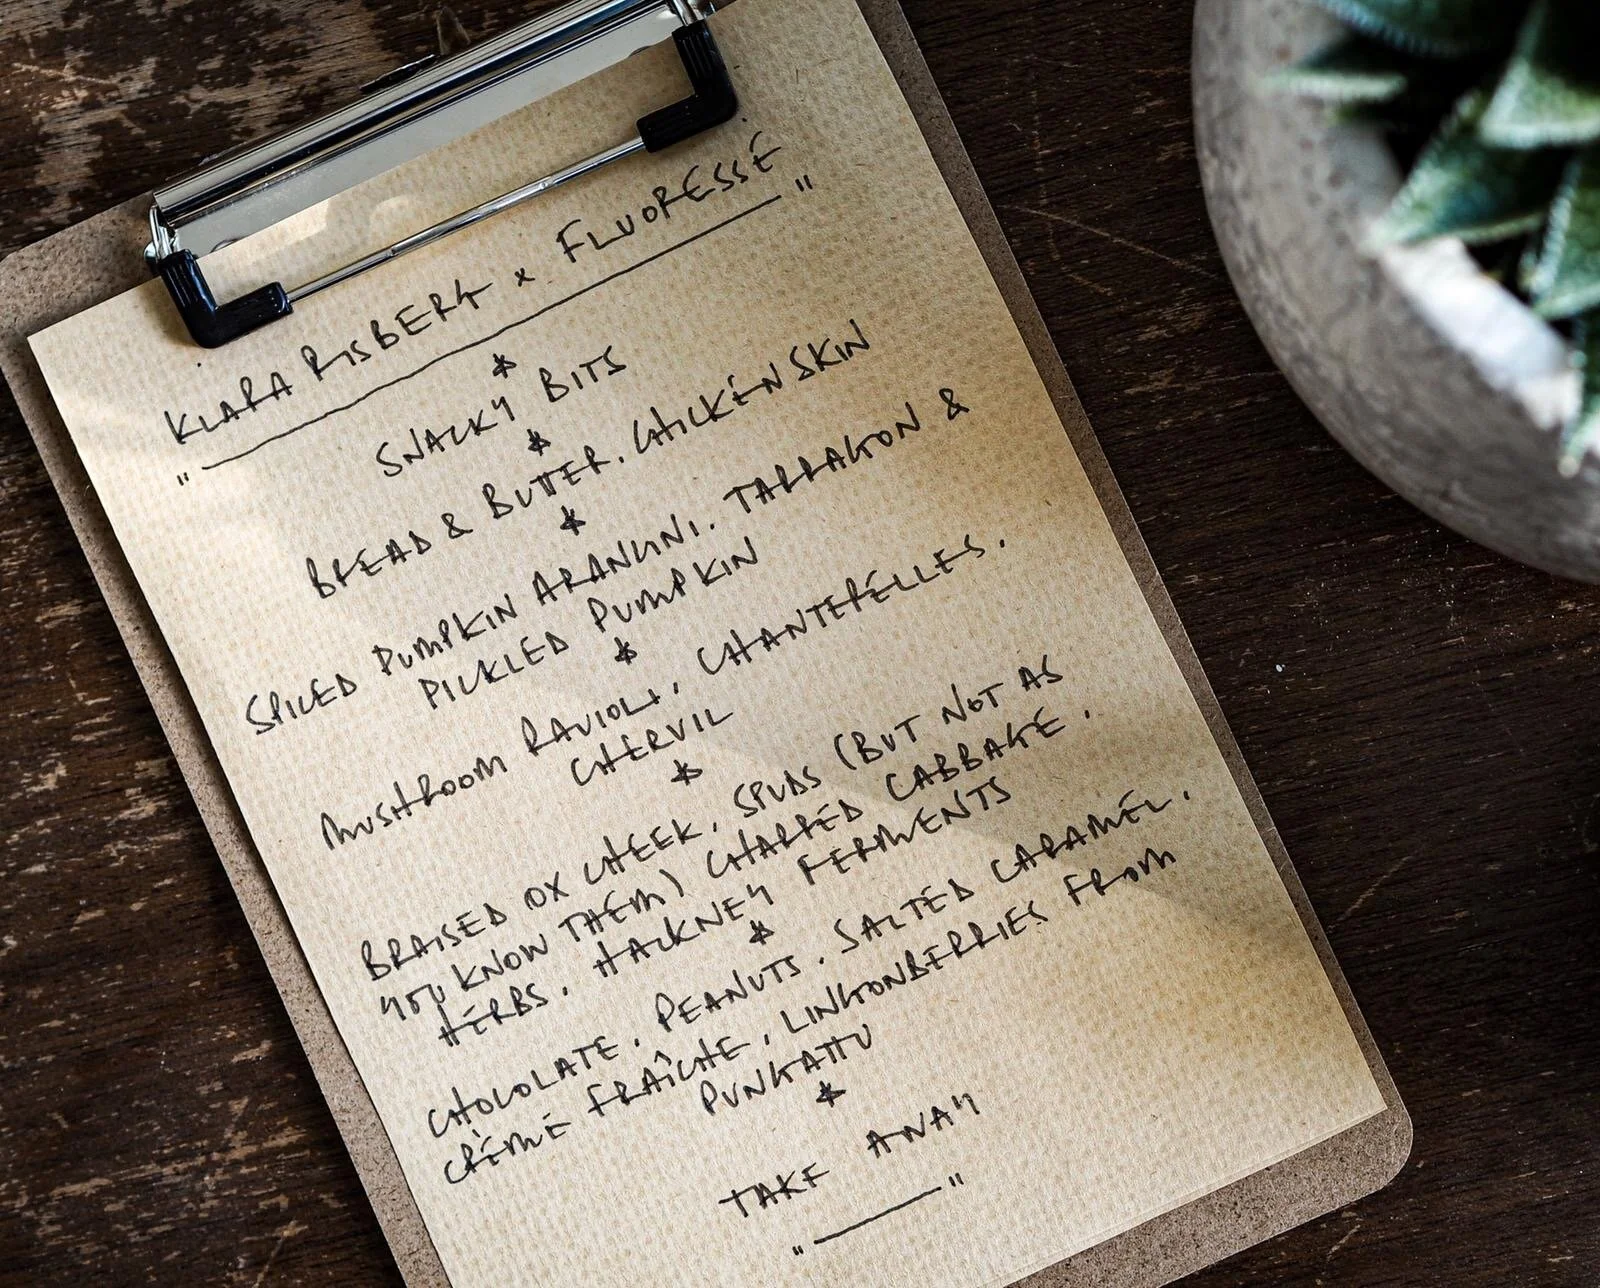 KLARA RISBERG x FLUORESSÉ
SNACKY BITS
BREAD & BUTTER. CHICKEN SKIN
SPICED PUMPKIN ARANCINI. TARRAGON &
PICKLED PUMPKIN
MUSHROOM RAVIOLI, CHANTERELLES.
CHERVIL
BRAISED OX CHEEK. SPUDS (BUT NOT AS
YOU KNOW THEM) CHARRED CABBAGE.
HERBS. HACKNEY FERMENTS
CHOCOLATE. PEANUTS. SALTED CARAMEL.
CRÉME FRAÎCHE, LINGONBERRIES FROM
PUNGATTU
TAKE AWAY